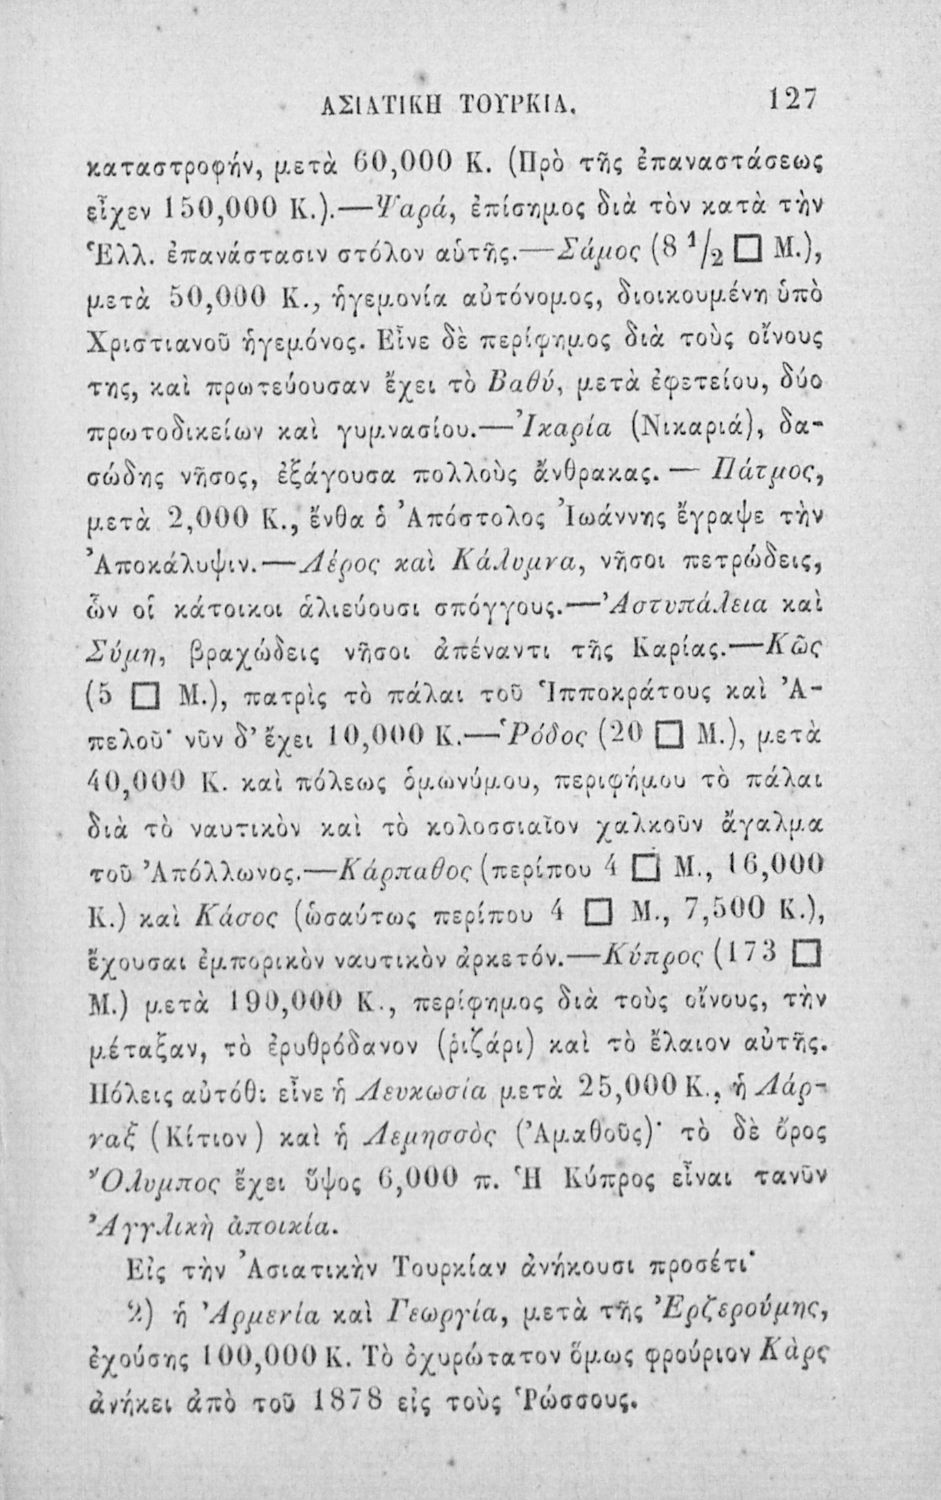 ΑΣΙΑΤΙΚΗ ΤΟΥΡΚΙΑ. 127
καταστροφήν, μετὰ 60,000 Κ. (Πρὸ τῆς ἐπαναστάσεως
εἶχεν 150,000 Κ.).—Ψαρά, ἐπίσημος διὰ τὸν κατὰ τὴν
Ἑλλ. ἐπανάστασιν στόλον αὑτῆς.—Σάμος (8 1/2 □ Μ.),
μετὰ 50,000 Κ., ἡγεμονία αὐτόνομος, διοικουμένη ὑπὸ
Χριστιανοῦ ἡγεμόνος. Εἶνε δὲ περίφημος διὰ τοὺς οἴνους
της, καὶ πρωτεύουσαν ἔχει τὸ Βαθύ, μετὰ ἐφετείου, δύο
πρωτοδικείων καὶ γυμνασίου.—Ἰκαρία (Νικαριά), δα-
σώδης νῆσος, ἐξάγουσα πολλοὺς ἄνθρακας. — Πάτμος,
μετὰ 2,000 Κ., ἔνθα ὁ Ἀπόστολος Ἰωάννης ἔγραψε τὴν
Ἀποκάλυψιν.—Λέρος καὶ Κάλυμνα, νῆσοι πετρώδεις,
ὧν οἱ κάτοικοι ἁλιεύουσι σπόγγους.—Ἀστυπάλεια καὶ
Σύμη, βραχώδεις νῆσοι ἀπέναντι τῆς Καρίας.—Κῶς
(5 □ Μ.), πατρὶς τὸ πάλαι τοῦ Ἱπποκράτους καὶ Ἀ-
πελοῦ· νῦν δ' ἔχει 10,000 Κ.—Ῥόδος (20 □ Μ.), μετὰ
40,000 Κ. καὶ πόλεως ὁμωνύμου, περιφήμου τὸ πάλαι
διὰ τὸ ναυτικὸν καὶ τὸ κολοσσιαῖον χαλκοῦν ἄγαλμα
τοῦ Ἀπόλλωνος.—Κάρπαθος (περίπου 4 □ Μ., 16,000
Κ.) καὶ Κάσος (ὡσαύτως περίπου 4 □ Μ., 7,500 Κ.),
ἔχουσαι ἐμπορικὸν ναυτικὸν ἀρκετόν.—Κύπρος (173 □
Μ.) μετὰ 190,000 Κ., περίφημος διὰ τοὺς οἴνους, τὴν
μέταξαν, τὸ ἐρυθρόδανον (ῥιζάρι) καὶ τὸ ἔλαιον αὐτῆς.
Πόλεις αὐτόθι εἶνε ἡ Λευκωσία μετὰ 25,000 Κ., ἡ Λάρ-
ναξ (Κίτιον) καὶ ἡ Λεμησσὸς (Ἀμαθοῦς)· τὸ δὲ ὄρος
Ὄλυμπος ἔχει ὕψος 6,000 π. Ἡ Κύπρος εἶναι τανῦν
Ἀγγλικὴ ἀποικία.
Εἰς τὴν Ἀσιατικὴν Τουρκίαν ἀνήκουσι προσέτι·
2) ἡ Ἀρμενία καὶ Γεωργία, μετὰ τῆς Ἐρζερούμης,
ἐχούσης 100,000 Κ. Τὸ ὀχυρώτατον ὅμως φρούριον Κὰρς
ἀνήκει ἀπὸ τοῦ 1878 εἰς τοὺς Ῥώσσους.